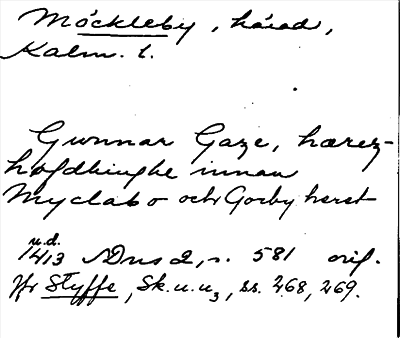 Möckleby, härad,
Kalm. l.
Gunnar Gaze, hærez-
hofdhinghe innan
Myclabo och Gorby heret
u.d.
1413 SDns 2, s. 581 orig.
Jfr Styffe, Sk.u.u3, ss. 268, 269.